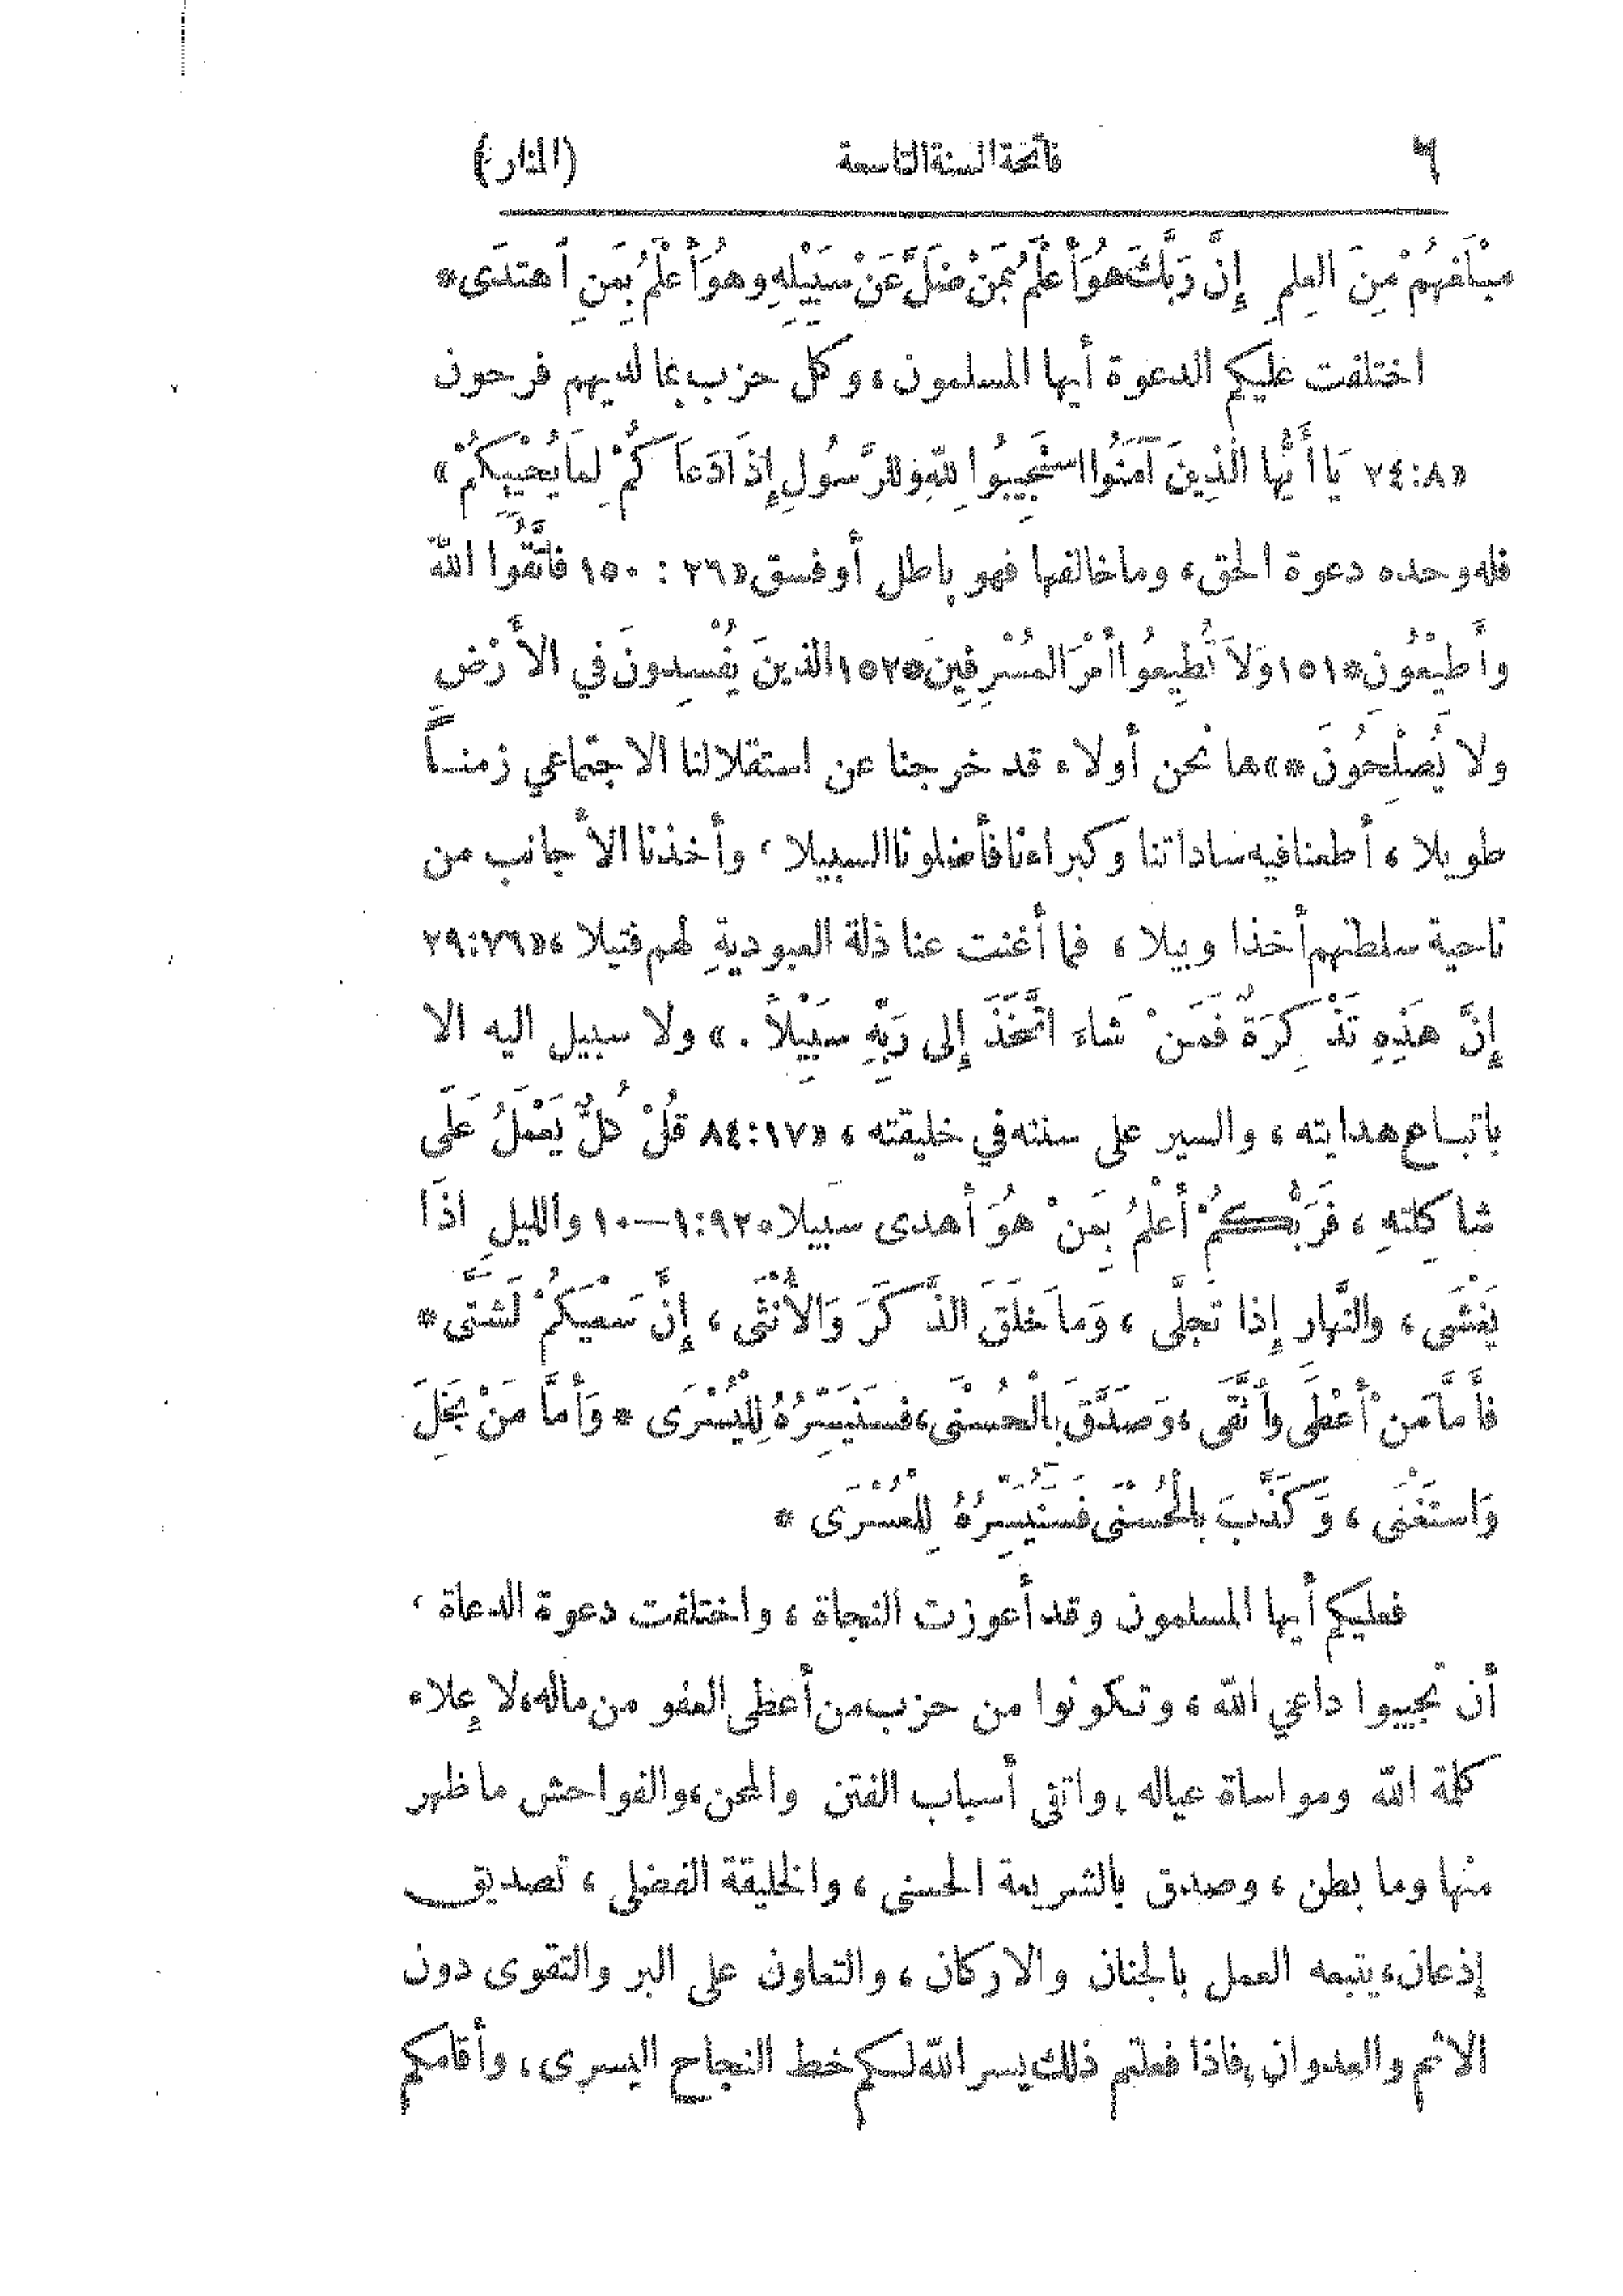 ٦ فاتحة السنة التاسعة (المنار)
مَبْلَغُهُمْ مِنَ العِلمِ إِنَّ رَبَّكَ هُوَ أَعْلَمُ بِمَنْ ضَلَّ عَنْ سَبِيْلِهِ وهُوَ أَعْلَمُ بِمَنِ اَهتدَى*
اختلفت عليكم الدعوة أيها المسلمون، وكل حزب بما لديهم فرحون
«٢٤:٨ يَا أَيُّها الَّذِينَ آمَنُوا اسْتَجِيبُوا للهِ وَللرَّسُولِ إِذَا دَعَاكُمْ لِمَا يُحْيِيكُمْ»
فله وحده دعوة الحق، وما خالفها فهو باطل أو فسق «٢٦: ١٥٠ فاتَّقُوا اللهَ
وأَطِيْعُون*١٥١ وَلاَ تُطِيعُوا أَمْرَ المُسْرِفِينَ*١٥٢ الذينَ يُفْسِدونَ في الأَرْضِ
ولا يُصْلِحُونَ*» ها نحن أولاء قد خرجنا عن استقلالنا الاجتماعي زمنــاً
طويلا، أطعنا فيه ساداتنا وكبراءنا فأضلونا السبيلا، وأخذنا الأجانب من
ناحية سلطتهم أخذا وبيلا، فما أغنت عنا ذلة العبوديةِ لهم فتيلا، «٢٩:٧٦
إِنَّ هَذِهِ تَذْكِرَةٌ فَمَنْ شَاءَ اتَّخَذَ إِلى رَبِّهِ سَبِيْلاً.» ولا سبيل اليه الا
باتبـاع هدايته، والسير على سنته في خليقته، «٨٤:١٧ قُلْ كلٌّ يَعْمَلُ عَلَى
شاكِلتهِ، فَرَبُّكمْ أَعْلمُ بِمَنْ هوَ أَهدى سبِيلا*١:٩٢—١٠ والليلِ اذَا
يَغْشَى، والنَّهارِ إِذا تَجلَّى، وَما خَلقَ الذَّكَرَ وَالأُنثَى، إِنَّ سَعْيَكمْ لَشتَّى*
فأَمَّا مَنْ أَعْطَى واتَّقَى، وَصَدَّقَ بِالْحُسْنَى، فسَنُيَسِّرُهُ لِليُسْرَى * وَأَمَّا مَنْ بَخِلَ
وَاستَغْنَى، وَكَذَّبَ بِالْحُسْنَى فَسَنُيَسِّرُهُ لِلْعُسْرَى *
فعليكم أيها المسلمون وقد أعوزت النجاة، واختلفت دعوة الدعاة،
أن تجيبوا داعي الله، وتكونوا من حزب من أعطى العفو من ماله، لا علاء
كلمة الله ومواساة عياله، واتقى أسباب الفتن والمحن، والفواحش ما ظهر
منها وما بطن، وصدق بالشريعة الحسنى، والخليقة الفضلى، تصديق
إذعان، يتبعه العمل بالجنان والاركان، والتعاون على البر والتقوى دون
الاثم والعدوان، فاذا فعلتم ذلك يسر الله لكم خطط النجاح اليسرى، وأقامكم